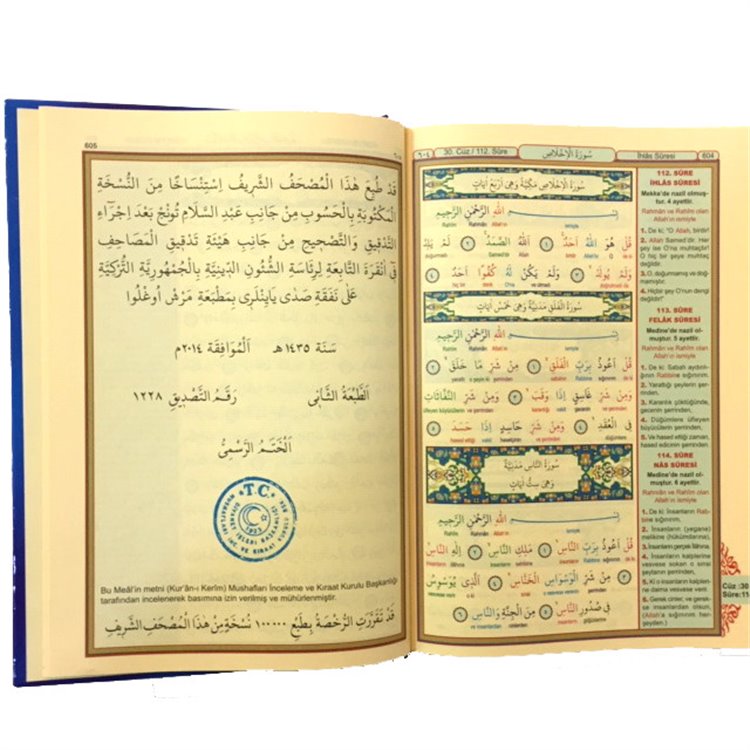 605
قَدْ طُبِعَ هٰذَا الْمُصْحَفُ الشَّرِيفُ اِسْتِنْسَاخًا مِنَ النُّسْخَةِ
الْمَكْتُوبَةِ بِالْحَسُوبِ مِنْ جَانِبِ عَبْدِ السَّلَامِ تُونْجْ بَعْدَ اِجْرَاءِ
التَّدْقِيقِ وَالتَّصْحِيحِ مِنْ جَانِبِ هَيْئَةِ تَدْقِيقِ الْمَصَاحِفِ
فِى أَنْقَرَةَ التَّابِعَةِ لِرِئَاسَةِ الشُّئُونِ الدِّينِيَّةِ بِالْجُمْهُورِيَّةِ التُّرْكِيَّةِ
عَلَى نَفَقَةِ صَدَى يَايِنْلَرِى بِمَطْبَعَةِ مَرْشْ اُوغْلُوا
سَنَة ١٤٣٥ هـ الْمُوَافِقَة ٢٠١٤م
اَلطَّبْعَةُ الثَّانِى رَقَمُ التَّصْدِيقِ ١٢٢٨
اَلْخَتْمُ الرَّسْمِىُّ
T.C.
1923
Bu Meâl'in metni (Kur'ân-ı Kerîm) Mushafları İnceleme ve Kıraat Kurulu Başkanlığı
tarafından incelenerek basımına izin verilmiş ve mühürlenmiştir.
قَدْ تَقَرَّرَتِ الرُّخْصَةُ بِطَبْعِ ١٠٠٠٠٠ نُسْخَةٍ مِنْ هٰذَا الْمُصْحَفِ الشَّرِيفِ
٦٠٤ 30. Cüz / 112. Sûre سُورَةُ الْاِخْلَاصِ İhlâs Sûresi 604
سُورَةُ الْاِخْلَاصِ مَكِّيَّةٌ وَهِىَ اَرْبَعُ اٰيَاتٍ
بِسْمِ اللّٰهِ الرَّحْمٰنِ الرَّحِيمِ
قُلْ هُوَ اللّٰهُ اَحَدٌ ﴿١﴾ اَللّٰهُ الصَّمَدُ ﴿٢﴾ لَمْ يَلِدْ
وَلَمْ يُولَدْ ﴿٣﴾ وَلَمْ يَكُنْ لَهُ كُفُوًا اَحَدٌ ﴿٤﴾
سُورَةُ الْفَلَقِ مَدَنِيَّةٌ وَهِىَ خَمْسُ اٰيَاتٍ
بِسْمِ اللّٰهِ الرَّحْمٰنِ الرَّحِيمِ
قُلْ اَعُوذُ بِرَبِّ الْفَلَقِ ﴿١﴾ مِنْ شَرِّ مَا خَلَقَ ﴿٢﴾
وَمِنْ شَرِّ غَاسِقٍ اِذَا وَقَبَ ﴿٣﴾ وَمِنْ شَرِّ النَّفَّاثَاتِ
فِى الْعُقَدِ ﴿٤﴾ وَمِنْ شَرِّ حَاسِدٍ اِذَا حَسَدَ ﴿٥﴾
سُورَةُ النَّاسِ مَدَنِيَّةٌ
وَهِىَ سِتُّ اٰيَاتٍ
بِسْمِ اللّٰهِ الرَّحْمٰنِ الرَّحِيمِ
قُلْ اَعُوذُ بِرَبِّ النَّاسِ ﴿١﴾ مَلِكِ النَّاسِ ﴿٢﴾ اِلٰهِ النَّاسِ ﴿٣﴾
مِنْ شَرِّ الْوَسْوَاسِ الْخَنَّاسِ ﴿٤﴾ اَلَّذِى يُوَسْوِسُ
فِى صُدُورِ النَّاسِ ﴿٥﴾ مِنَ الْجِنَّةِ وَالنَّاسِ ﴿٦﴾
112. SÛRE
İHLÂS SÛRESİ
Mekke'de nazil olmuş-
tur. 4 ayettir.
Rahmân ve Rahîm olan
Allah'ın ismiyle
1. De ki: "O Allah, birdir!
2. Allah Samed'dir. Her
şey ise O'na muhtaçtır!
O hiç bir şeye muhtaç
değildir.
3. O, doğurmamış ve doğ-
mamıştır.
4. Hiçbir şey O'nun dengi
değildir!"
113. SÛRE
FELAK SÛRESİ
Medine'de nazil ol-
muştur. 5 ayettir.
Rahmân ve Rahîm olan
Allah'ın ismiyle
1. De ki: Sabah aydınlı-
ğının Rabbine sığınırım.
2. Yarattığı şeylerin şer-
rinden,
3. Karanlık çöktüğünde,
gecenin şerrinden,
4. Düğümlere üfleyen
büyücülerin şerrinden,
5. Ve hased ettiği zaman,
hasedçinin şerrinden.
114. SÛRE
NÂS SÛRESİ
Medine'de nazil ol-
muştur. 6 ayettir.
Rahmân ve Rahîm olan
Allah'ın ismiyle
1. De ki: İnsanların Rab-
bine sığınırım,
2. İnsanların (yegane)
melikine (hükümdarına),
3. İnsanların gerçek İlâhına.
4. İnsanların kalplerine
vesvese sokan o sinsi
şeytanın şerrinden.
5. Ki o insanların kalpleri-
ne daima vesvese verir.
6. Gerek cinler, ve gerek-
se insanlardan olsun,
(Allah'a sığınırım her
şeyden.)
Cüz :30
Sûre:11